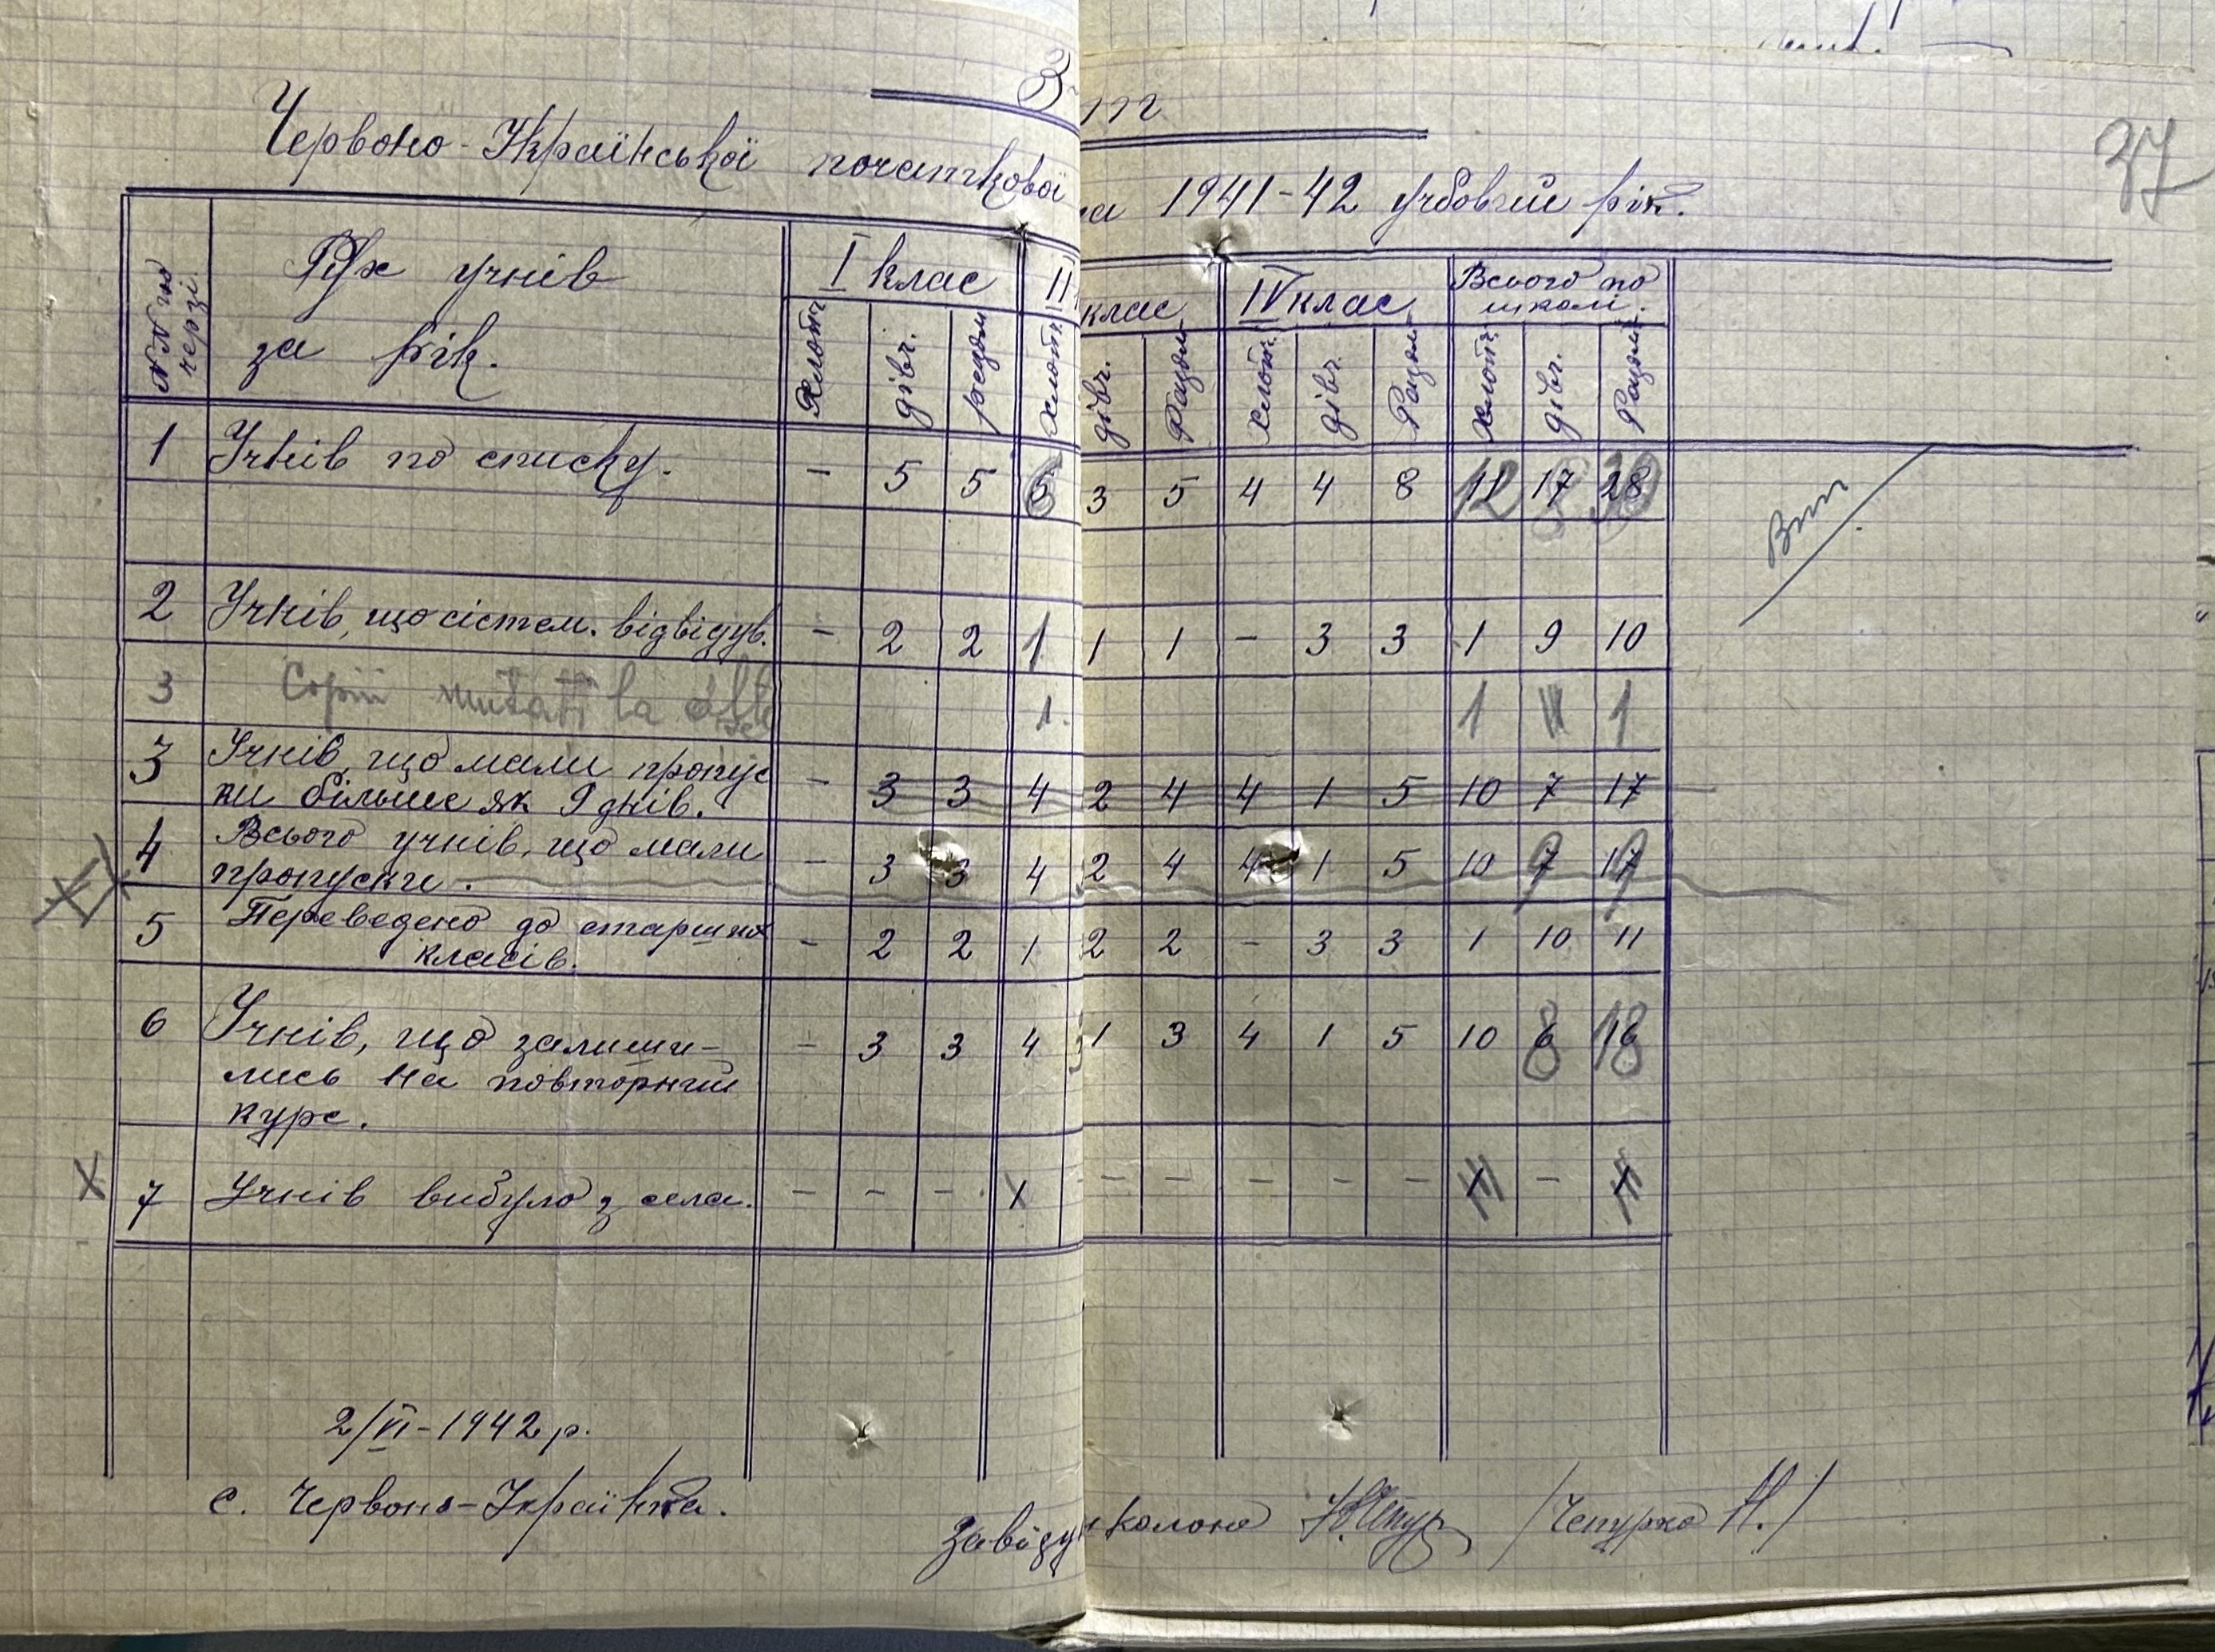 Червоно-Української початкової
1941-42 учбовий рік.
37
№№ по черзі.
Рух учнів
за рік.
I клас
II
клас
IV клас
Всього по
школі.
Хлопч
дівч.
разом
хлопч.
дівч.
Разом
хлопч.
дівч.
Разом
хлопч.
дівч.
Разом
1 Учнів по списку. - 5 5 3 5 4 4 8 17 28
Вип
2 Учнів, що сістем. відвідув. - 2 2 1 1 1 - 3 3 1 9 10
3 Copii mutați la alte 1. 1 1
3 Учнів, що мали пропус
ки більше як 9 днів. - 3 3 4 2 4 4 1 5 10 7 17
4 Всього учнів, що мали
пропуски. - 3 3 4 2 4 4 1 5 10 7 17
5 Переведено до старших
класів. - 2 2 1 2 2 - 3 3 1 10 11
6 Учнів, що залиши-
лись на повторний
курс. - 3 3 4 1 3 4 1 5 10 8 18
X 7 Учнів вибуло з села. - - - - - - - - -
2/VI-1942 р.
с. Червоно-Українка.
Завіду школою /Чепурко Н./